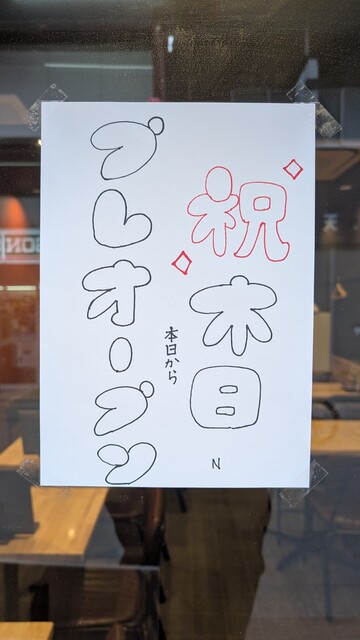 祝木日
N
本日から
プレオープン